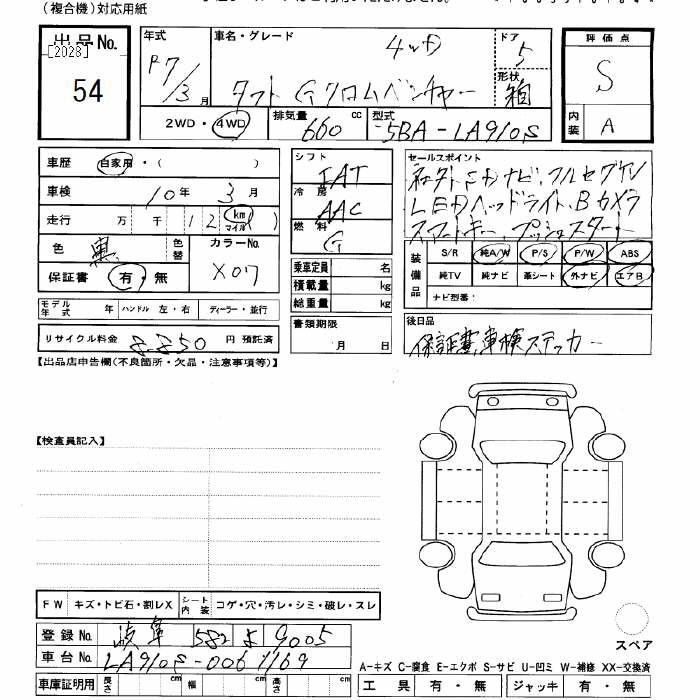 (複合機)対応用紙
出品No.
[2028]
54
年式 R7/3月
車名・グレード 4WD
タフト Gクロムベンチャー
ドア 5
形状 箱
2WD・4WD
排気量 660 cc
型式 5BA-LA910S
評価点
S
内装 A
車歴 自家用・( )
車検 10年 3月
走行 万 千 12 km マイル ( )
色 黒 色替 カラーNo. X07
保証書 有・無
モデル年式 年 ハンドル 左・右 ディーラー・並行
リサイクル料金 8.850 円 預託済
シフト IAT
冷房 AAC
燃料 G
乗車定員 名
積載量 kg
総重量 kg
書類期限
月 日
セールスポイント
ネクストSDナビ、フルセグTV
LEDヘッドライト、Bカメラ
スマートキー プッシュスタート
装備品
S/R 純A/W P/S P/W ABS
純TV 純ナビ 革シート 外ナビ エアB
ナビ型番:
後日品
保証書、車検ステッカー
【出品店申告欄(不良箇所・欠品・注意事項等)】
【検査員記入】
FW キズ・トビ石・割レX シート内装 コゲ・穴・汚レ・シミ・破レ・スレ
登録No. 岐阜 582 よ 9005
車台No. LA910S-0061169
車庫証明用 長さ cm 幅 cm 高さ cm
スペア
A-キズ C-腐食 E-エクボ S-サビ U-凹ミ W-補修 XX-交換済
工具 有・無 ジャッキ 有・無